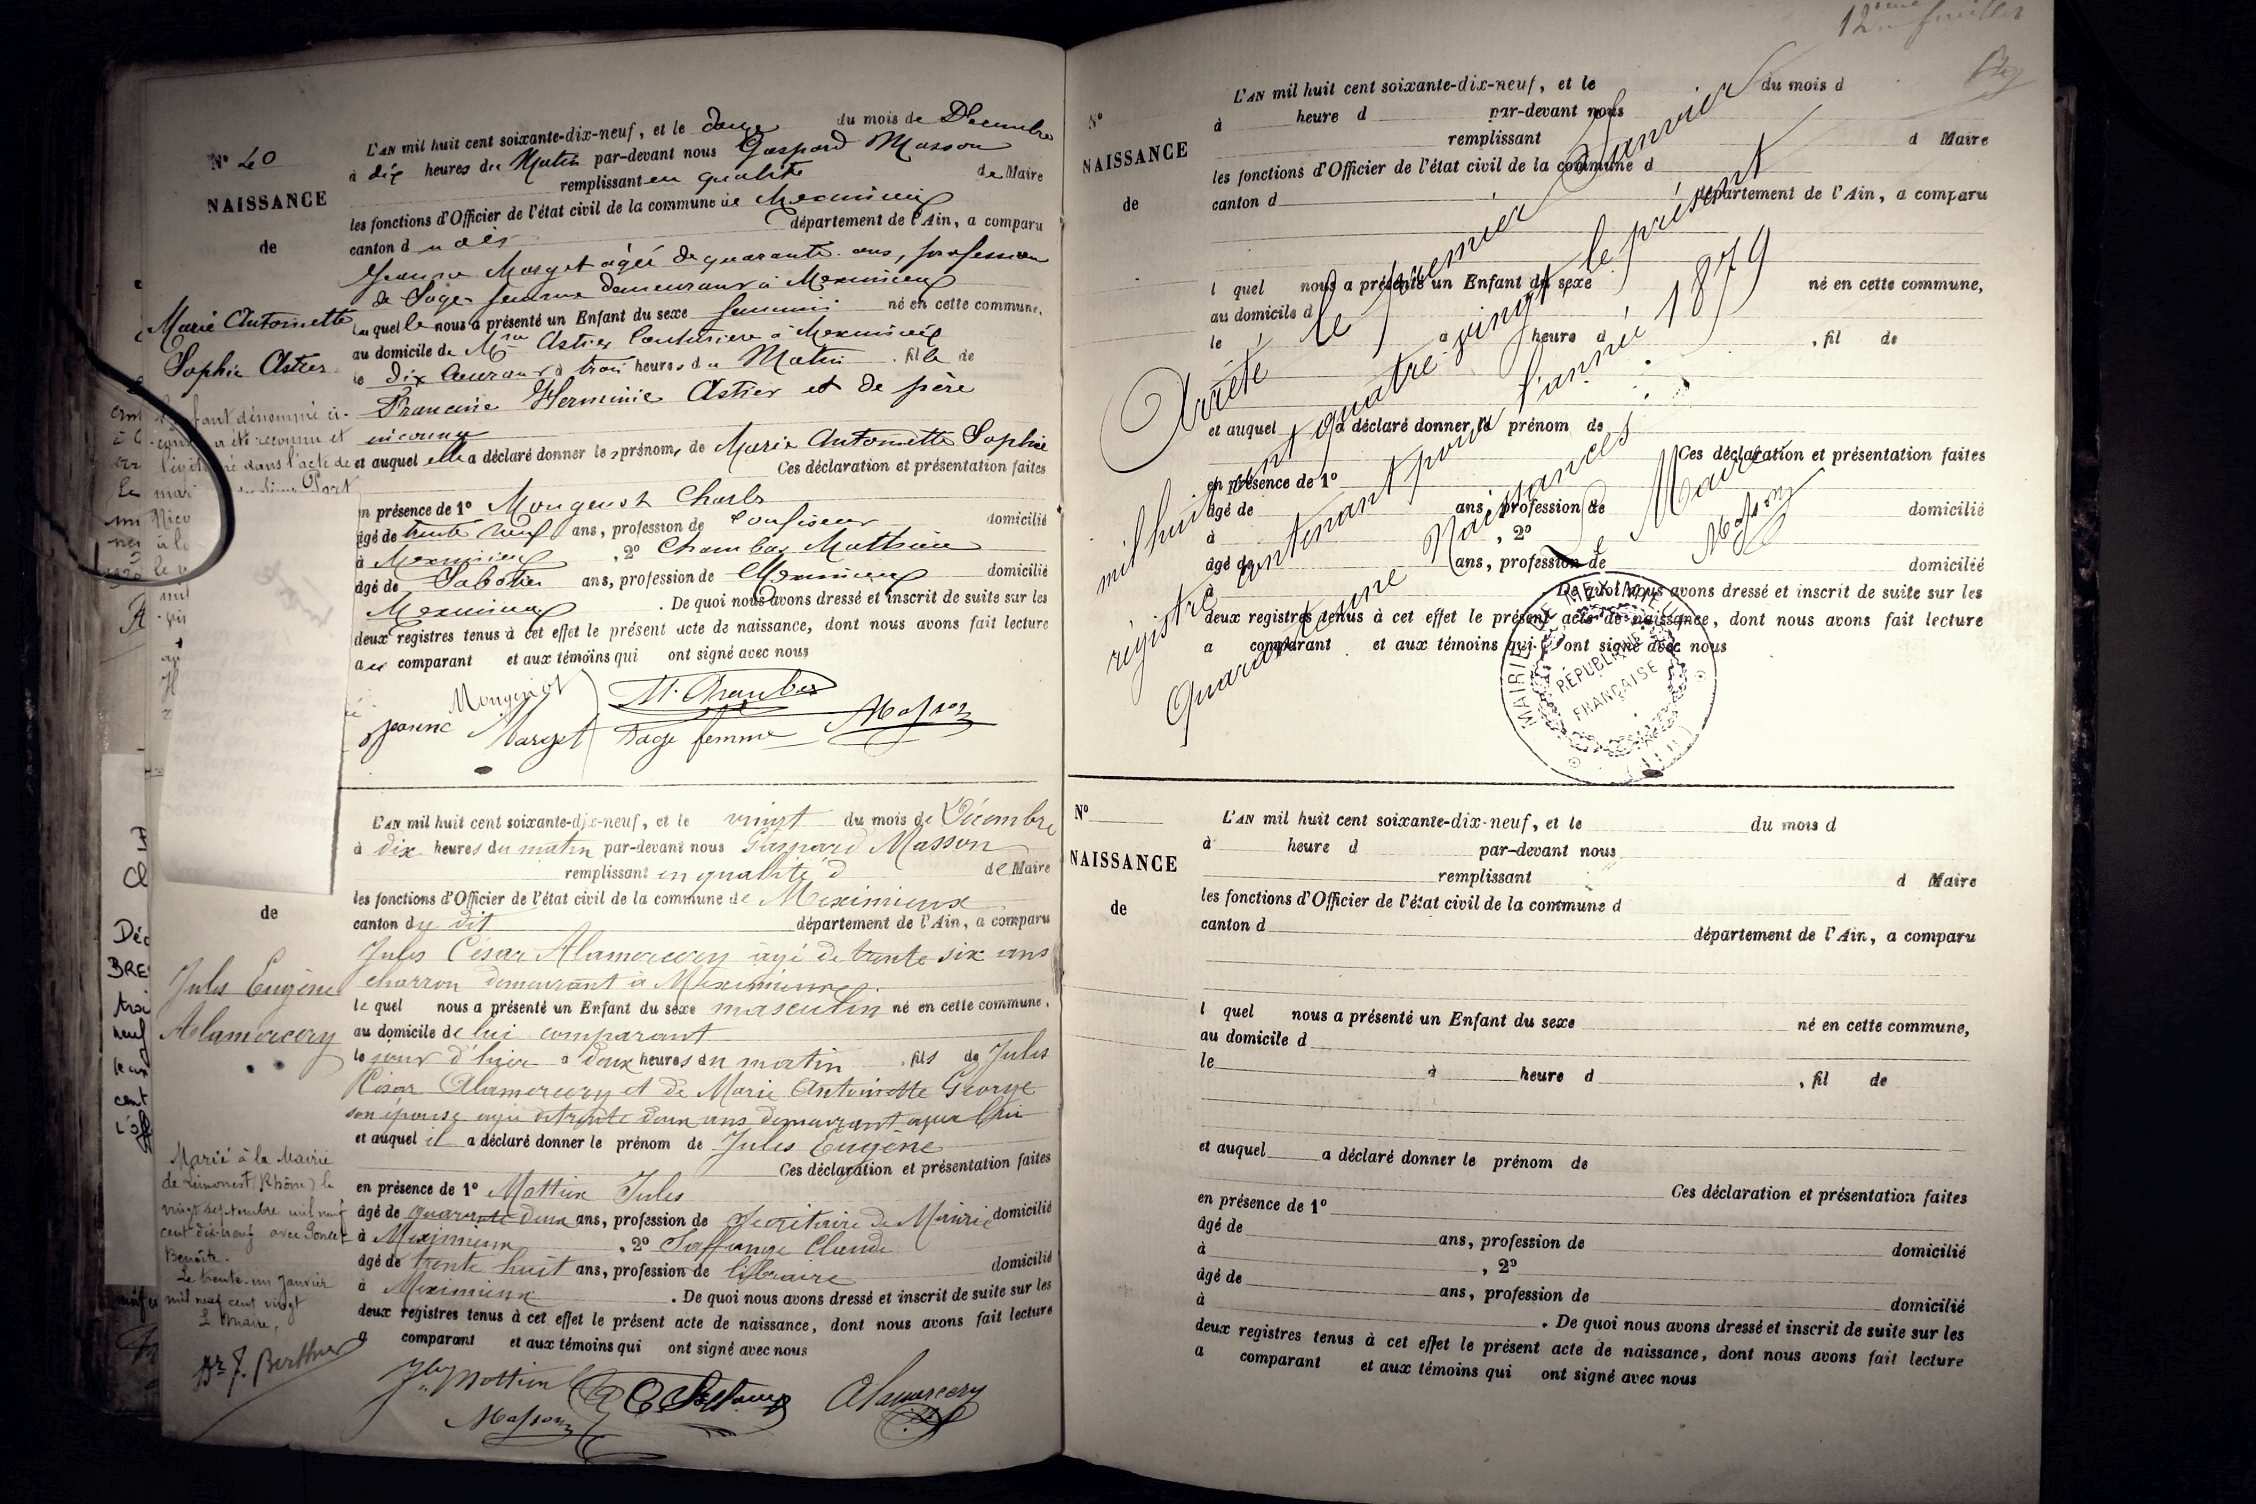 N° 40
NAISSANCE
de
Marie Antoinette
Sophie Astier
L'AN mil huit cent soixante-dix-neuf, et le douze du mois de Décembre
à dix heures du Matin par-devant nous Gaspard Masson
remplissant en qualité de Maire
les fonctions d'Officier de l'état civil de la commune de Meximieux
canton d département de l'Ain, a comparu
Jeanne Marget âgée de quarante ans, profession
de Sage femme demeurant à Meximieux
laquelle nous a présenté un Enfant du sexe feminin né en cette commune,
au domicile de Astier Couturière à Meximieux
le dix Courant à trois heures du Matin, fille de
Francine Herminie Astier et de père
inconnu
et auquel elle a déclaré donner les prénoms de Marie Antoinette Sophie
Ces déclaration et présentation faites
en présence de 1° Mougenot Charles
âgé de trente neuf ans, profession de Confiseur domicilié
à Meximieux, 2° Chambas Mathieu
âgé de Sabotier ans, profession de Meximieux domicilié
Meximieux. De quoi nous avons dressé et inscrit de suite sur les
deux registres tenus à cet effet le présent acte de naissance, dont nous avons fait lecture
aux comparant et aux témoins qui ont signé avec nous
Mougenot
Jeanne Marget Sage femme Masson
de
Jules Eugène
Alamercery
L'AN mil huit cent soixante-dix-neuf, et le vingt du mois de Décembre
à dix heures du matin par-devant nous Gaspard Masson
remplissant en qualité d de Maire
les fonctions d'Officier de l'état civil de la commune de Meximieux
canton du dit département de l'Ain, a comparu
Jules César Alamercery âgé de trente six ans
charron demeurant à Meximieux
le quel nous a présenté un Enfant du sexe masculin né en cette commune,
au domicile de lui comparant
le jour d'hier à deux heures du matin, fils de Jules
César Alamercery et de Marie Antoinette George
son épouse agée de trente deux ans demeurant avec lui
et auquel il a déclaré donner le prénom de Jules Eugène
Ces déclaration et présentation faites
en présence de 1° Mottin Jules
âgé de quarante deux ans, profession de Secrétaire de Mairie domicilié
à Meximieux, 2° Claude
âgé de trente huit ans, profession de libraire domicilié
à Meximieux. De quoi nous avons dressé et inscrit de suite sur les
deux registres tenus à cet effet le présent acte de naissance, dont nous avons fait lecture
a comparant et aux témoins qui ont signé avec nous
Mottin Alamercery
Masson
Marié à la Mairie
de Limonest (Rhône) le
vingt septembre mil neuf
cent dix-neuf avec Poncet
Benoîte.
Le trente-un Janvier
mil neuf cent vingt
Le Maire,
12ème feuillet
N°
NAISSANCE
de
L'AN mil huit cent soixante-dix-neuf, et le du mois d
à heure d par-devant nous
remplissant d Maire
les fonctions d'Officier de l'état civil de la commune d
canton d département de l'Ain, a comparu
l quel nous a présenté un Enfant du sexe né en cette commune,
au domicile d
le à heure d, fil de
et auquel a déclaré donner le prénom de
Ces déclaration et présentation faites
en présence de 1°
âgé de ans, profession de domicilié
à, 2°
âgé de ans, profession de domicilié
à. De quoi nous avons dressé et inscrit de suite sur les
deux registres tenus à cet effet le présent acte de naissance, dont nous avons fait lecture
a comparant et aux témoins qui ont signé avec nous
Arrêté le premier Janvier
mil huit cent quatre-vingt le présent
régistre contenant pour l'année 1879
Quarante une Naissances
Le Maire
Masson
MAIRIE DE MEXIMIEUX
RÉPUBLIQUE
FRANÇAISE
(AIN)
N°
NAISSANCE
de
L'AN mil huit cent soixante-dix-neuf, et le du mois d
à heure d par-devant nous
remplissant d Maire
les fonctions d'Officier de l'état civil de la commune d
canton d département de l'Ain, a comparu
l quel nous a présenté un Enfant du sexe né en cette commune,
au domicile d
le à heure d, fil de
et auquel a déclaré donner le prénom de
Ces déclaration et présentation faites
en présence de 1°
âgé de ans, profession de domicilié
à, 2°
âgé de ans, profession de domicilié
à. De quoi nous avons dressé et inscrit de suite sur les
deux registres tenus à cet effet le présent acte de naissance, dont nous avons fait lecture
a comparant et aux témoins qui ont signé avec nous